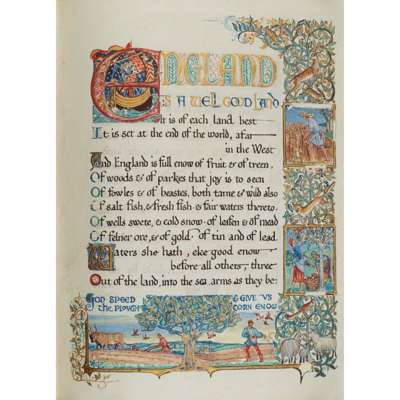 ENGLAND
IS A WEL GOOD LAND
It is of each land best
It is set at the end of the world, afar
in the West
And England is full enow of fruit & of treen,
Of woods & of parkes that joy is to seen
Of fowles & of beastes, both tame & wild also
Of salt fish, & fresh fish & fair waters thereto.
Of wells swete, & cold snow - of lesen & of mead
Of felner ore, & of gold - of tin and of lead.
Waters she hath, eke good enow
before all others, three
Out of the land, into the sea, arms as they be:
GOD SPEED
THE PLOUGH
& GIVE US
CORN ENOW